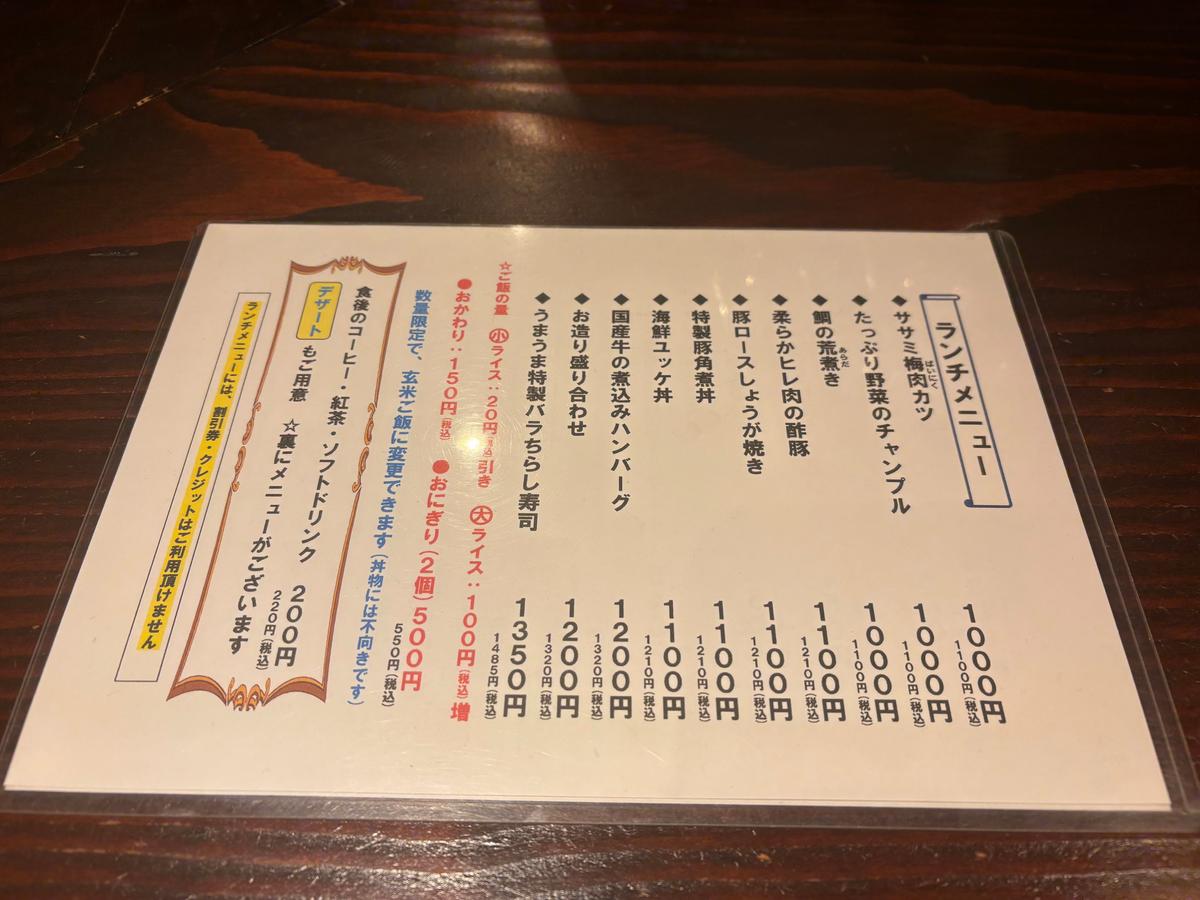 ランチメニュー
◆ササミ梅肉カツ 1000円
ばいにく
1100円(税込)
◆たっぷり野菜のチャンプル 1000円
1100円(税込)
◆鯛の荒煮き 1000円
あらだ
1100円(税込)
◆柔らかヒレ肉の酢豚 1100円
1210円(税込)
◆豚ロースしょうが焼き 1100円
1210円(税込)
◆特製豚角煮丼 1100円
1210円(税込)
◆海鮮ユッケ丼 1100円
1210円(税込)
◆国産牛の煮込みハンバーグ 1200円
1320円(税込)
◆お造り盛り合わせ 1200円
1320円(税込)
◆うまうま特製バラちらし寿司 1350円
1485円(税込)
☆ご飯の量 小ライス:20円(税込)引き 大ライス:100円(税込)増
●おかわり:150円(税込) ●おにぎり(2個)500円
550円(税込)
数量限定で、玄米ご飯に変更できます(丼物には不向きです)
食後のコーヒー・紅茶・ソフトドリンク 200円
220円(税込)
デザート もご用意 ☆裏にメニューがございます
ランチメニューには、割引券・クレジットはご利用頂けません